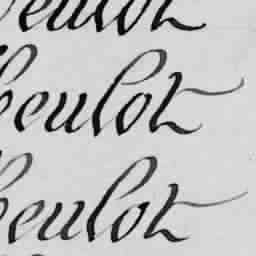 heulot
heulot
heulot